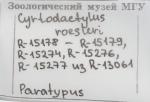 Зоологический музей МГУ
Cyrtodactylus
roesleri
R-15178 – R-15179,
R-15274, R-15276,
R-15277 из R-13061
Paratypus